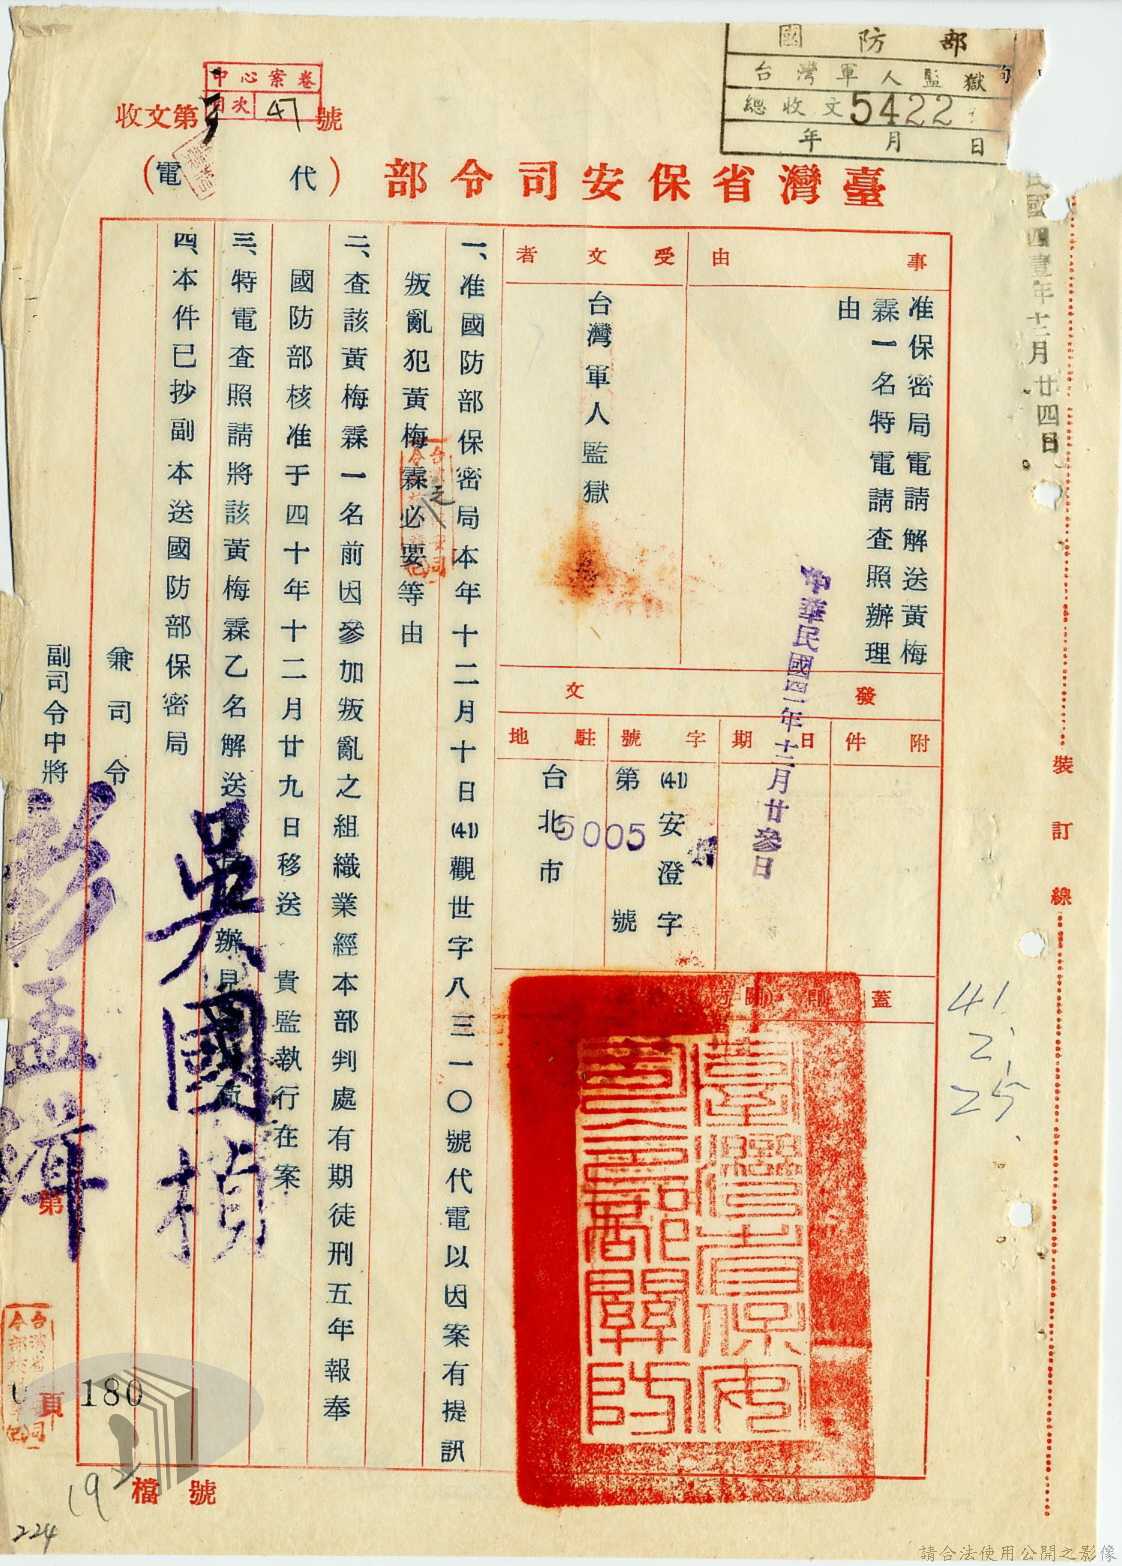 國防部
台灣軍人監獄
總收文5422
年月日
中心案卷
目次 47
收文第 號
臺灣省保安司令部(代電)
民國四壹年十二月廿四日
事由
准保密局電請解送黃梅
霖一名特電請查照辦理
由
受文者
台灣軍人監獄
發文
附件
日期
中華民國四一年十二月廿參日
字號
(41)安澄字
第5005號
駐地
台北市
蓋
臺灣省保安司令部關防
一、准國防部保密局本年十二月十日(41)觀世字八三一〇號代電以因案有提訊
叛亂犯黃梅霖之必要等由
二、查該黃梅霖一名前因參加叛亂之組織業經本部判處有期徒刑五年報奉
國防部核准于四十年十二月廿九日移送 貴監執行在案
三、特電查照請將該黃梅霖乙名解送 辦見
四、本件已抄副本送國防部保密局
兼司令 吳國楨
副司令中將 彭孟緝
裝訂線
41.
2.
25.
第
頁
180
檔號
19
224
請合法使用公開之影像